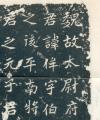 魏故太尉府
君諱伟字伯
之後平南将
君之元子若